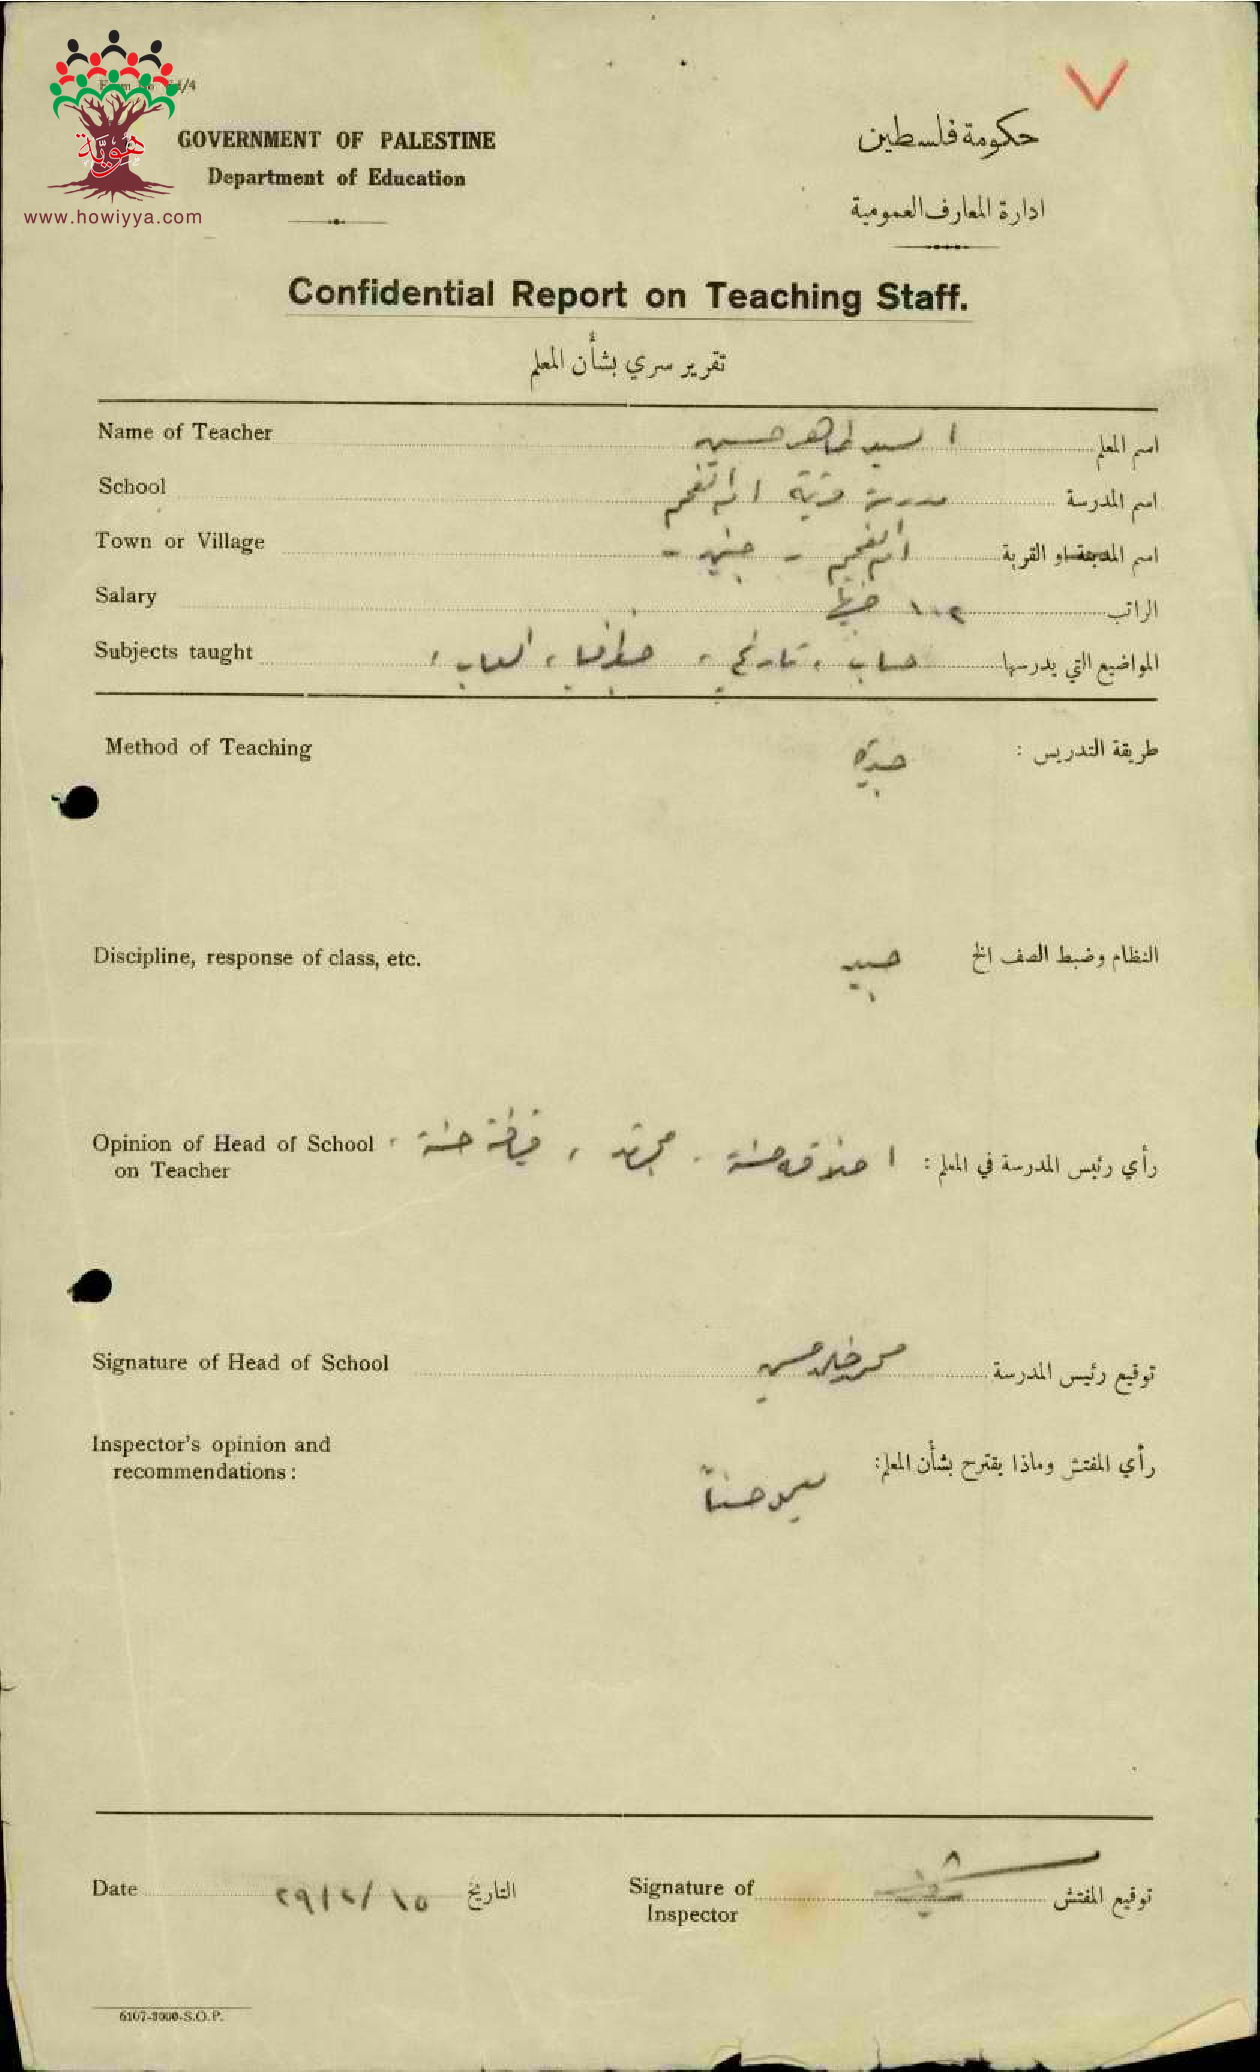 Form No. Ed/4
هوية
www.howiyya.com
GOVERNMENT OF PALESTINE
Department of Education
حكومة فلسطين
ادارة المعارف العمومية
Confidential Report on Teaching Staff.
تقرير سري بشأن المعلم
Name of Teacher السيد طاهر حسين اسم المعلم
School مدرسة قرية ام الفحم اسم المدرسة
Town or Village ام الفحم - جنين - اسم المدينة او القرية
Salary ١٠٢ جنيها الراتب
Subjects taught حساب ، تاريخ ، جغرافيا ، العاب ، المواضيع التي يدرسها
Method of Teaching جيدة طريقة التدريس :
Discipline, response of class, etc. جيد النظام وضبط الصف الخ
Opinion of Head of School on Teacher اخلاق حسنة . مجتهد ، قيافة حسنة ، رأي رئيس المدرسة في المعلم :
Signature of Head of School محمد حسين توقيع رئيس المدرسة
Inspector's opinion and recommendations : حسناً رأي المفتش وماذا يقترح بشأن المعلم:
Date ١٥/٢/٢٩ التاريخ Signature of Inspector توقيع المفتش
6107-3000-S.O.P.